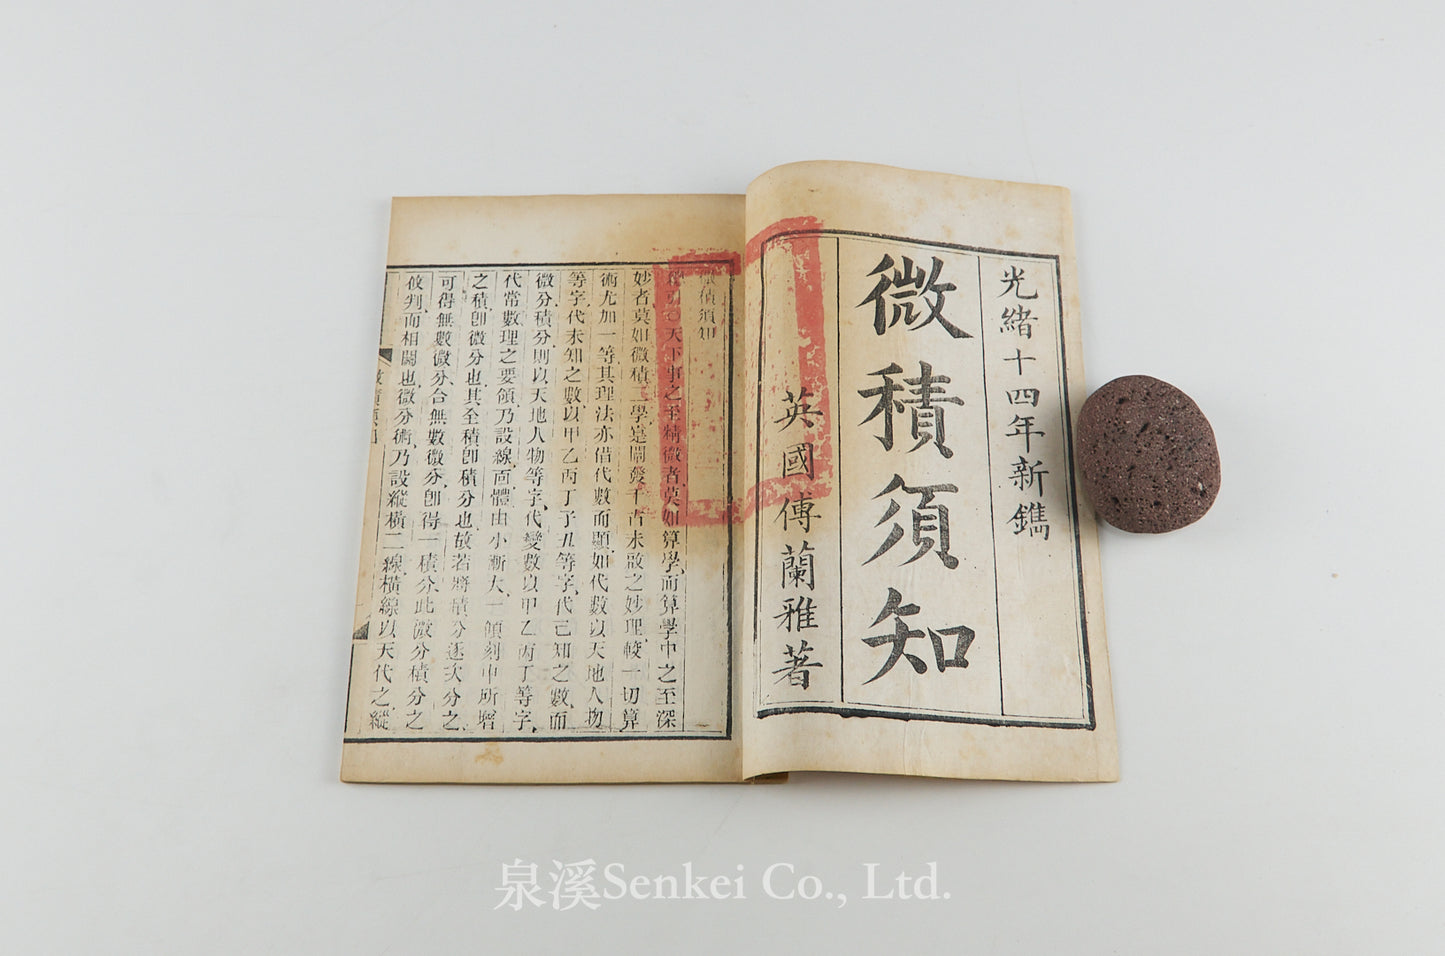 光緒十四年新鐫
微積須知
英國傅蘭雅著
微積須知
天下事之至精微者莫如算學而算學中之至深
妙者莫如微積二學是闢發千古未啟之妙理較一切算
術尤加一等其理法亦借代數而顯如代數以天地人物
等字代未知之數以甲乙丙丁子丑等字代已知之數而
微分積分則以天地人物等字代變數以甲乙丙丁等字
代常數理之要領乃設線面體由小漸大一傾刻中所增
之積卽微分也其至積卽積分也故若將積分逐次分之
可得無數微分合無數微分卽得一積分此微分積分之
攸判而相關也微分術乃設縱橫二線橫線以天代之縱
泉溪Senkei Co., Ltd.